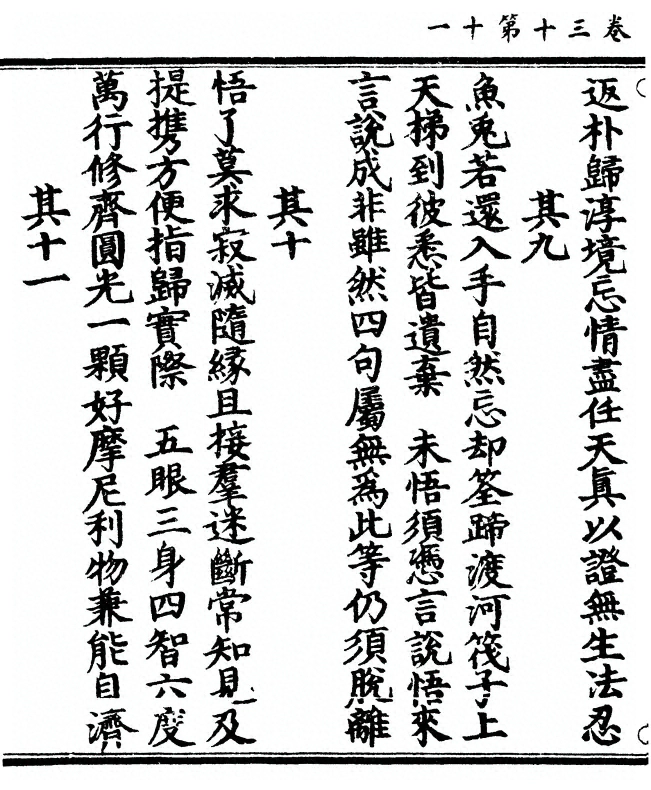 卷三十第十一
返朴歸淳境忘情盡任天眞以證無生法忍
其九
魚兎若還入手自然忘却筌蹄渡河筏子上
天梯到彼悉皆遺棄　未悟須憑言說悟來
言說成非雖然四句屬無爲此等仍須脫離
其十
悟了莫求寂滅隨緣且接羣迷斷常知見及
提携方便指歸實際　五眼三身四智六度
萬行修齊圓光一顆好摩尼利物兼能自濟
其十一